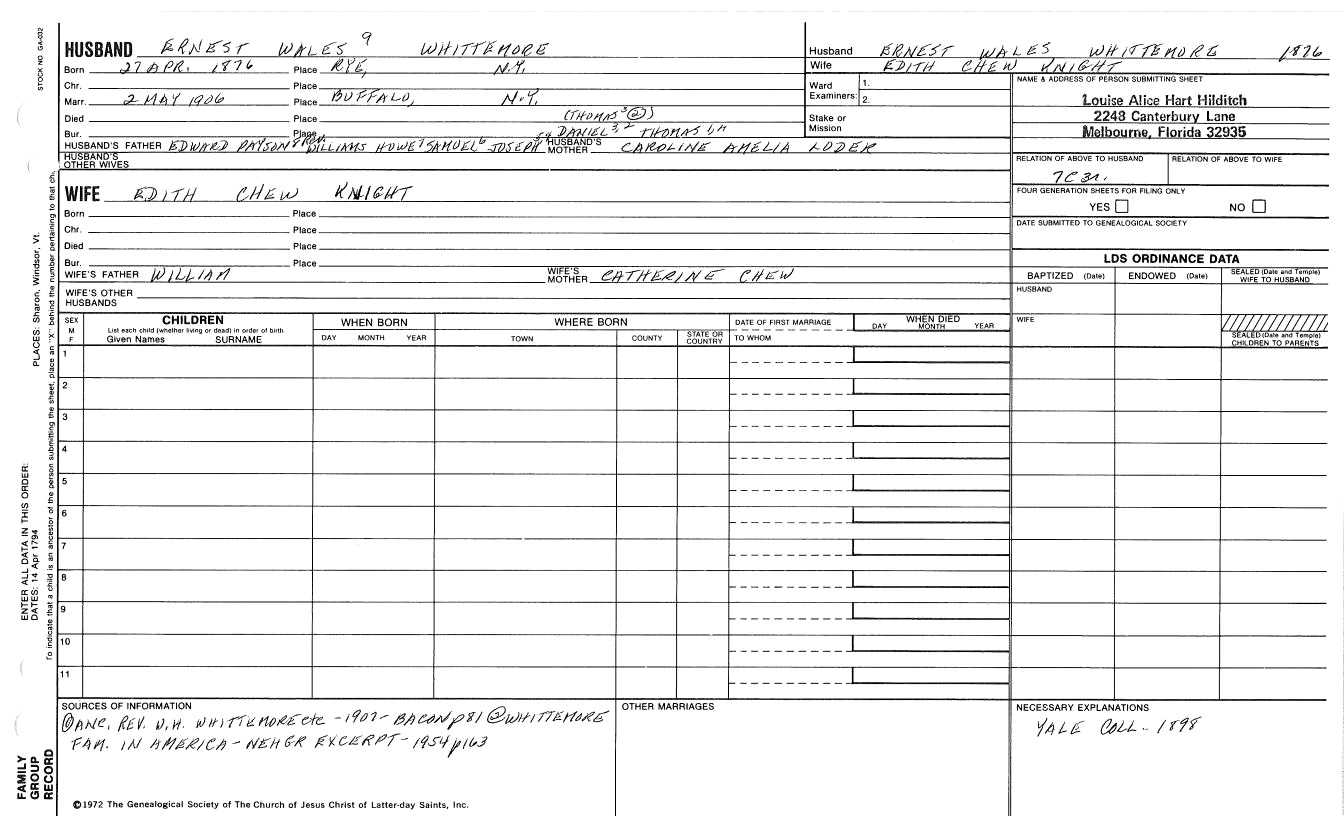 STOCK NO GA-032
HUSBAND ERNEST WALES 9 WHITTEMORE
Born 27 APR. 1876 Place RYE, N.Y.
Chr. Place
Marr. 2 MAY 1906 Place BUFFALO, N.Y.
Died Place (THOMAS 3 ②)
Bur. Place DANIEL 3, 2 THOMAS
HUSBAND'S FATHER EDWARD PAYSON 8 REV. WILLIAMS HOWE 7 SAMUEL 6 JOSEPH HUSBAND'S MOTHER CAROLINE AMELIA LODER
HUSBAND'S OTHER WIVES
WIFE EDITH CHEW KNIGHT
Born Place
Chr. Place
Died Place
Bur. Place
WIFE'S FATHER WILLIAM WIFE'S MOTHER CATHERINE CHEW
WIFE'S OTHER HUSBANDS
Husband ERNEST WALES WHITTEMORE 1876
Wife EDITH CHEW KNIGHT
Ward Examiners: 1. 2.
Stake or Mission
NAME & ADDRESS OF PERSON SUBMITTING SHEET
Louise Alice Hart Hilditch
2248 Canterbury Lane
Melbourne, Florida 32935
RELATION OF ABOVE TO HUSBAND RELATION OF ABOVE TO WIFE
7C3r.
FOUR GENERATION SHEETS FOR FILING ONLY
YES NO
DATE SUBMITTED TO GENEALOGICAL SOCIETY
LDS ORDINANCE DATA
BAPTIZED (Date) ENDOWED (Date) SEALED (Date and Temple) WIFE TO HUSBAND
HUSBAND
WIFE
SEALED (Date and Temple) CHILDREN TO PARENTS
SEX M F
CHILDREN
List each child (whether living or dead) in order of birth
Given Names SURNAME
WHEN BORN
DAY MONTH YEAR
WHERE BORN
TOWN COUNTY STATE OR COUNTRY
DATE OF FIRST MARRIAGE
TO WHOM
WHEN DIED
DAY MONTH YEAR
1
2
3
4
5
6
7
8
9
10
11
SOURCES OF INFORMATION
① ANC. REV. W.H. WHITTEMORE etc - 1907 - BACON p81 ② WHITTEMORE
FAM. IN AMERICA - NEHGR EXCERPT - 1954 p163
OTHER MARRIAGES
NECESSARY EXPLANATIONS
YALE COLL. 1898
©1972 The Genealogical Society of The Church of Jesus Christ of Latter-day Saints, Inc.
PLACES: Sharon, Windsor, Vt.
ENTER ALL DATA IN THIS ORDER:
DATES: 14 Apr 1794
To indicate that a child is an ancestor of the person submitting the sheet, place an "X" behind the number pertaining to that
FAMILY
GROUP
RECORD